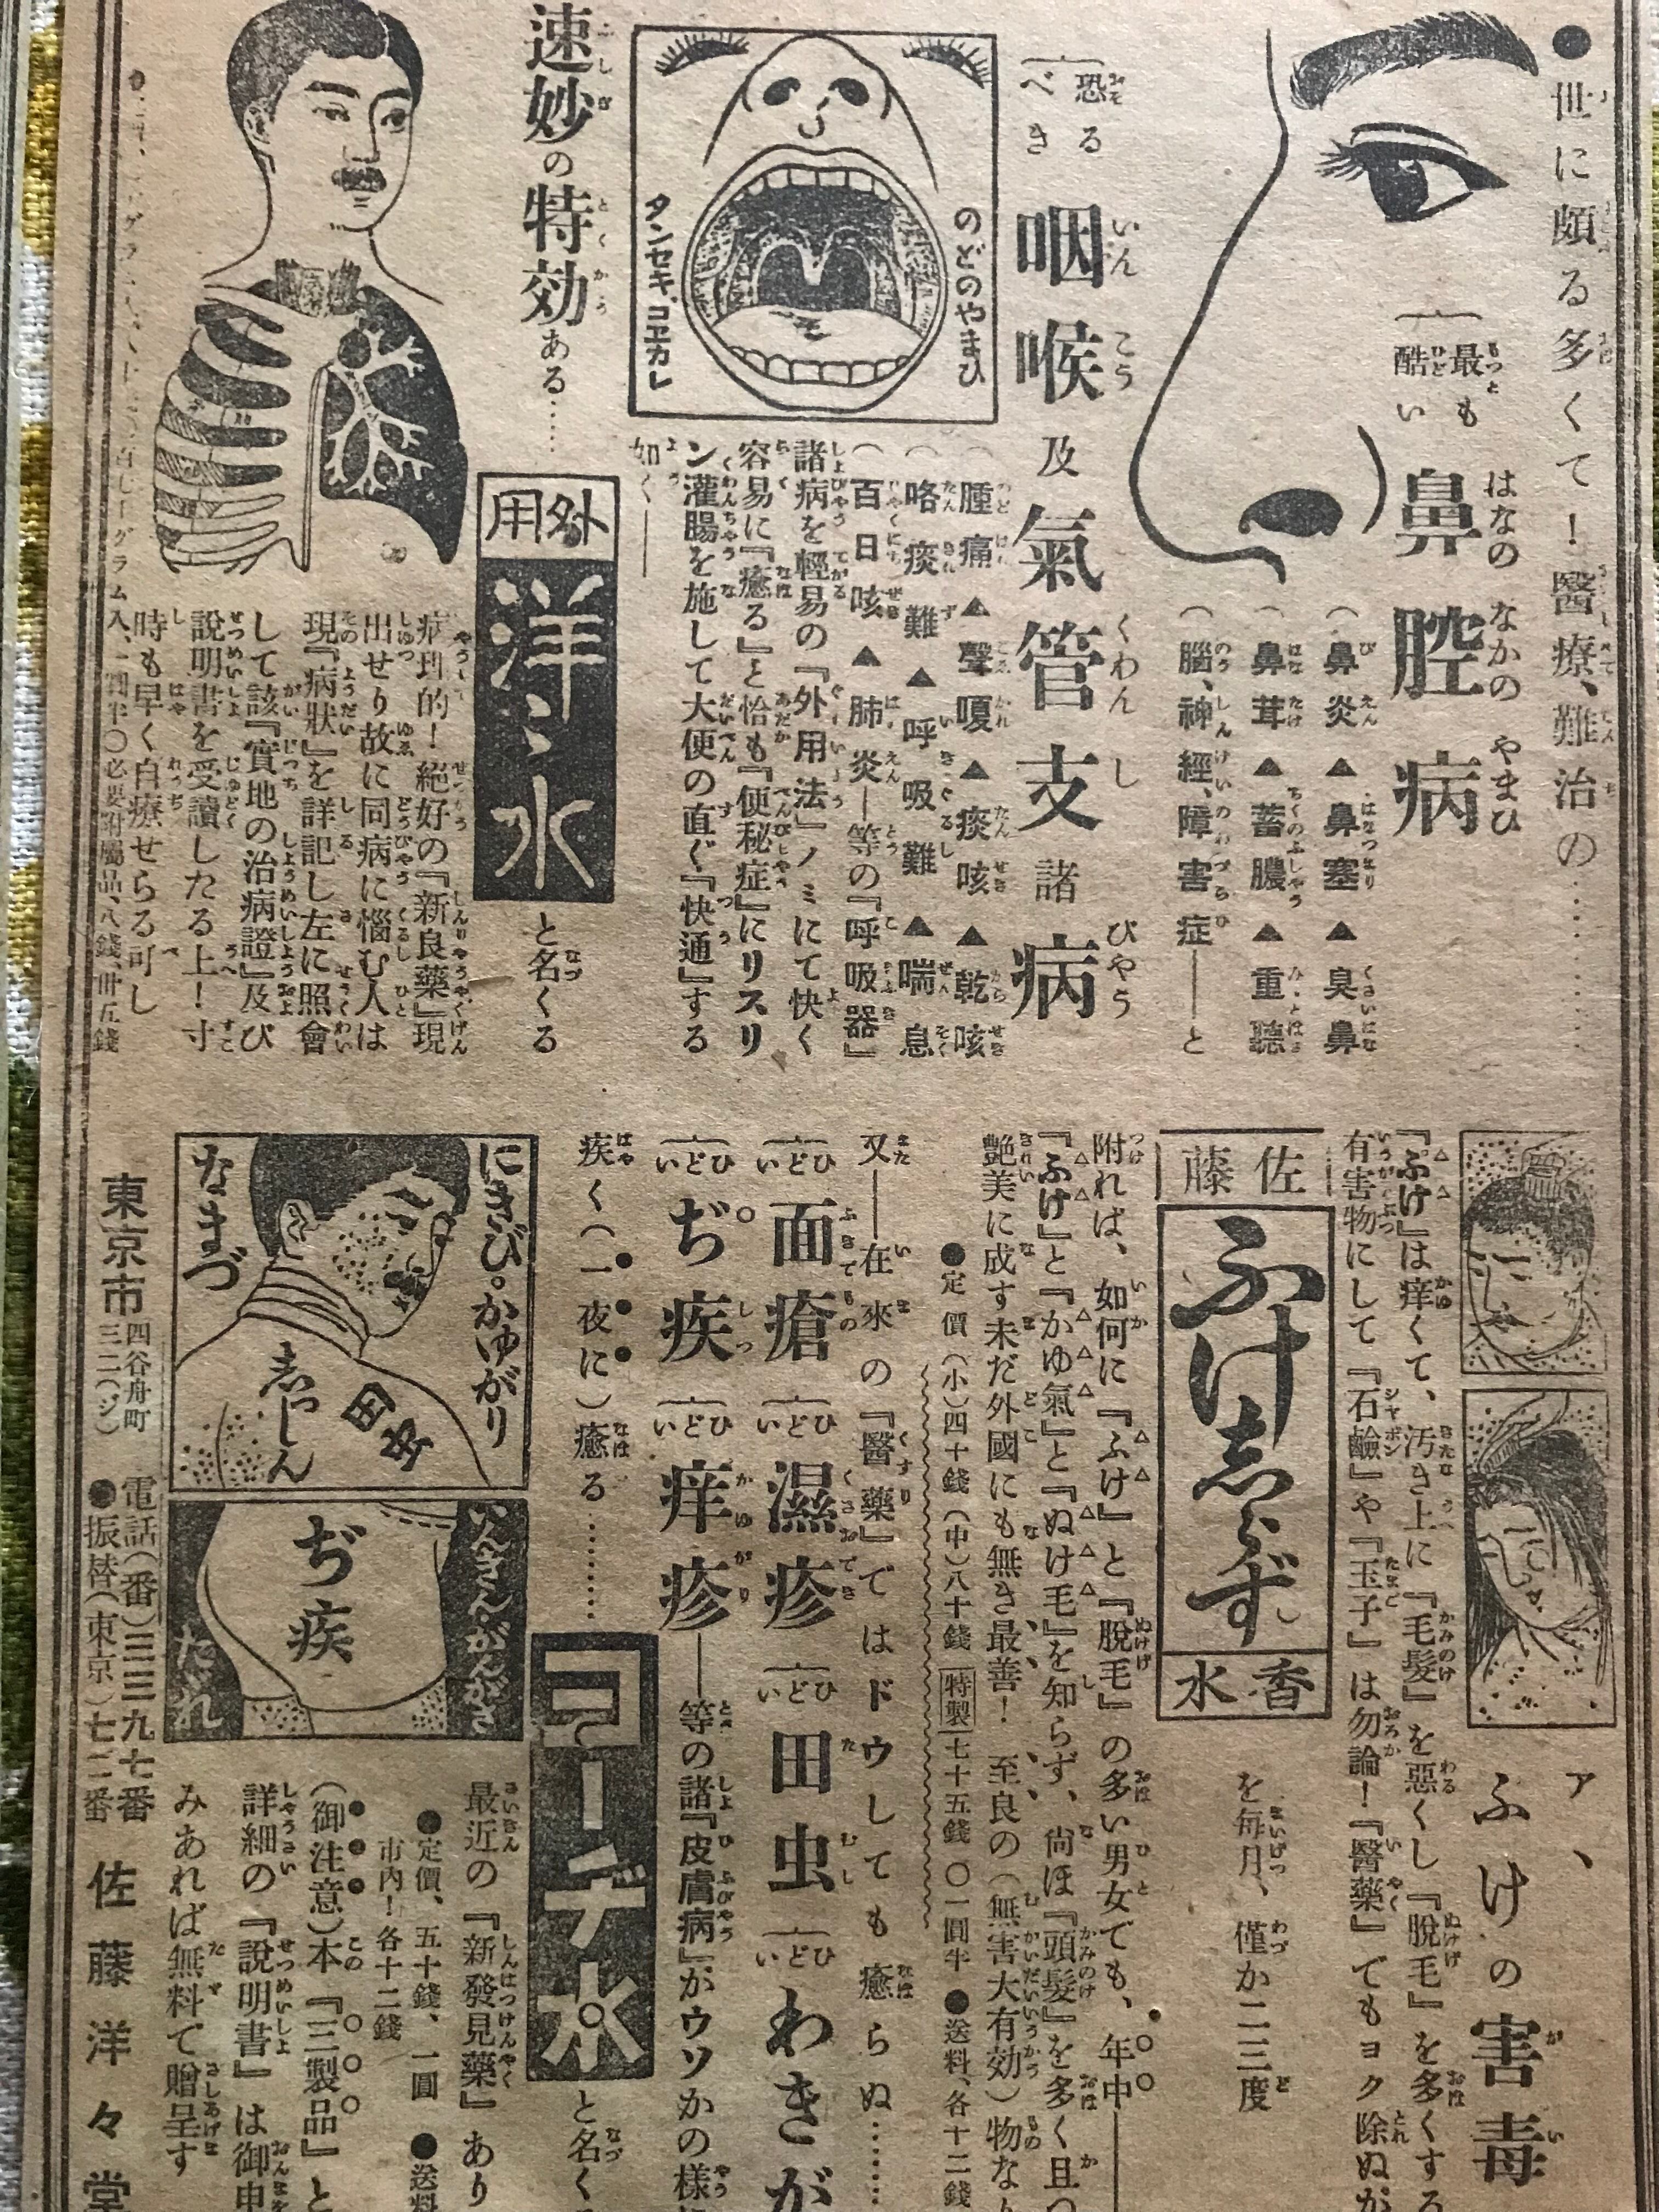 ●世に頗る多くて！醫療、難治の…………
最も酷い
はなの なかの やまひ
鼻腔病
鼻炎▲鼻塞▲臭鼻
鼻茸▲蓄膿▲重聽
腦、神經、障害症――と
恐るべき
咽喉及氣管支諸病
いんこう くわんし びやう
のどのやまひ
タンセキ、コエカレ
腫痛▲聲嗄▲痰咳▲乾咳
咯痰難▲呼吸難▲喘息
百日咳▲肺炎―等の『呼吸器』
諸病を輕易の『外用法』ノミにて快く
容易に『癒る』と恰も『便秘症』にリスリ
ン灌腸を施して大便の直ぐ『快通』する
如く――
速妙の特効ある……
外用
洋々水
と名くる
絕好の『新良藥』現
出せり故に同病に惱む人は
現『病狀』を詳記し左に照會
して該『實地の治病證』及び
說明書を受讀したる上！寸
時も早く自療せらる可し
必要附屬品、八錢、卅五錢
ア、ふけの害毒
『ふけ』は痒くて、汚き上に『毛髮』を惡くし『脫毛』を多くする
有害物にして『石鹼』や『玉子』は勿論！『醫藥』でもヨク除ぬが
を每月、僅か二三度
佐藤
ふけ志らず
香水
附れば、如何に『ふけ』と『脫毛』の多い男女でも、年中――
『ふけ』と『かゆ氣』と『ぬけ毛』を知らず、尙ほ『頭髮』を多く且つ
艶美に成す未だ外國にも無き最善！至良の（無害大有効）物なり
●定價（小）四十錢（中）八十錢 特製 七十五錢 〇一圓半 ●送料、各十二錢
又――在來の『醫藥』ではドウしても癒らぬ……
ひどい面瘡 ひどい濕疹 ひどい田虫 ひどいわきが
ひどいぢ疾 ひどい痒疹――等の諸『皮膚病』がウソかの樣に
疾く（一夜に）癒る………
ヨーデ水
と名く
にきび。かゆがり
なまづ
志っしん
田虫
いんきんがんがさ
ぢ疾
たゞれ
最近の『新發見藥』あり
●定價、五十錢、一圓 ●送料
市內！各十二錢
（御注意）本『三製品』と
詳細の『說明書』は御申
みあれば無料て贈呈す
東京市四谷舟町三二（ジ）
電話（番）三三九七番
●振替（東京）七二番
佐藤洋々堂